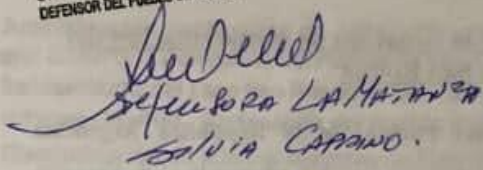 DEFENSOR DEL PUEBLO
DEFENSORA LA MATANZA
SILVIA CARPINO.